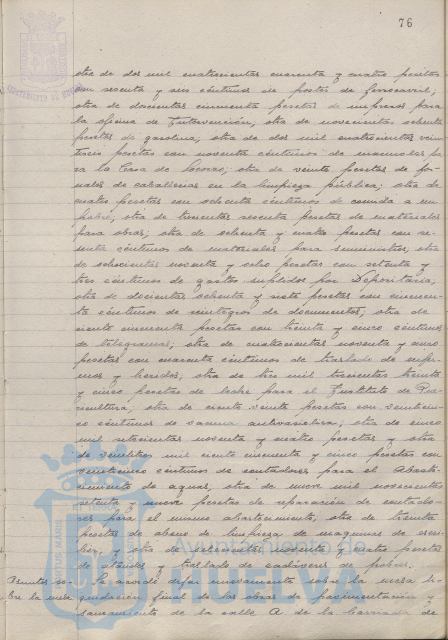 76
otra de dos mil cuatrocientas cuarenta y cuatro pesetas
con sesenta y seis céntimos de portes de ferrocarril;
otra de doscientas cincuenta pesetas de impresos para
la oficina de Intervención, otra de novecientas ochenta
pesetas de gasolina, otra de dos mil cuatrocientas vein
pesetas con noventa céntimos de
ra la Casa de Socorro; otra de veinte pesetas de jor
nales de caballerías en la limpieza pública; otra de
cuatro pesetas con ochenta céntimos de comida a un
pobre; otra de trescientas sesenta pesetas de materiales
para obras; otra de ochenta y cuatro pesetas con se
senta céntimos de materiales para suministros; otra
de ochocientas noventa y ocho pesetas con setenta y
tres céntimos de gastos suplidos por Depositaría,
otra de doscientas ochenta y siete pesetas con cincuen
ta céntimos de reintegros de documentos; otra de
ciento cincuenta pesetas con treinta y cinco céntimos
de telegramas; otra de cuatrocientas noventa y cinco
pesetas con cuarenta céntimos de traslado de enfer
mos y heridos; otra de tres mil trescientas treinta
y cinco pesetas de leche para el Instituto de Pue
ricultura, otra de ciento veinte pesetas con veinticin
co céntimos de vacuna antivariólica; otra de cinco
mil setecientas noventa y cuatro pesetas y otra
de mil ciento cincuenta y cinco pesetas con
veinticinco céntimos de contadores para el Abaste
cimiento de aguas, otra de nueve mil novecientas
setenta y nueve pesetas de reparación de contado
res para el mismo abastecimiento; otra de treinta
pesetas de abono de limpieza de maquinas de escri
bir, y otra de setecientas noventa y cuatro pesetas
de ataúdes y traslado de cadáveres de pobres.
Asuntos so- Se acordó dejar nuevamente sobre la mesa la
bre la mesa quidación final de las obras de pavimentación y
saneamiento de la calle A de la Barriada de
Ayuntamiento de
HUELVA